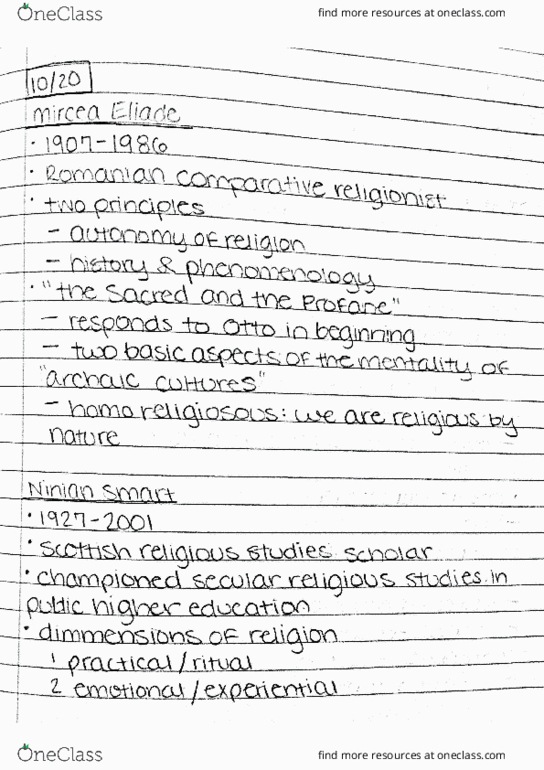 OneClass
find more resources at oneclass.com
10/20
Mircea Eliade
· 1907-1986
· Romanian comparative religionist
· two principles
- autonomy of religion
- history & phenomenology
· "the Sacred and the Profane"
- responds to Otto in beginning
- two basic aspects of the mentality of
"archaic cultures"
- homo religiosous: we are religious by
nature
Ninian Smart
· 1927-2001
· Scottish religious studies scholar
· championed secular religious studies in
public higher education
· dimmensions of religion
1 practical/ritual
2 emotional/experiential
OneClass
find more resources at oneclass.com